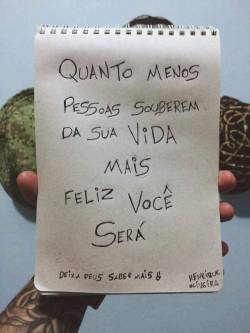 QUANTO MENOS
PESSOAS SOUBEREM
DA SUA VIDA
MAIS
FELIZ VOCÊ
SERÁ
DEIXA DEUS SABER MAIS
HENRIQUE
OLIVEIRA